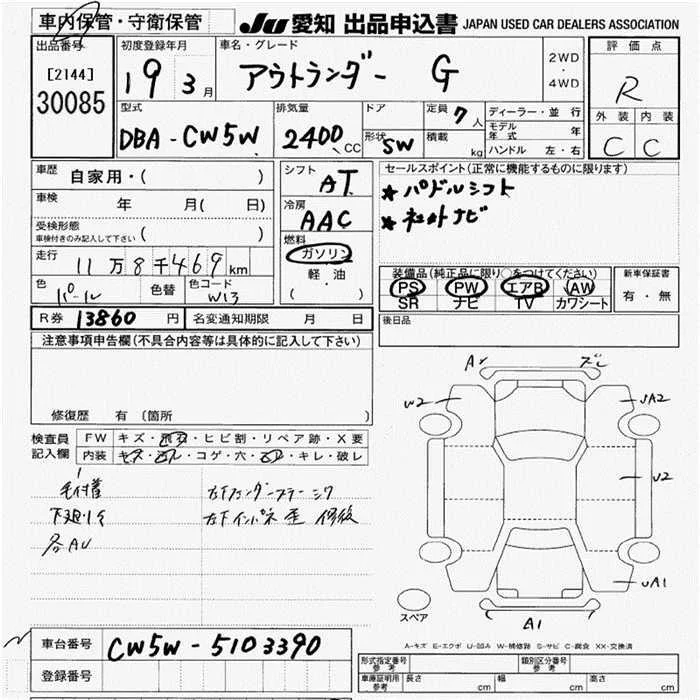 車内保管・守衛保管
JU 愛知 出品申込書 JAPAN USED CAR DEALERS ASSOCIATION
出品番号
[2144]
30085
初度登録年月
19 3月
車名・グレード
アウトランダー G
2WD
・
4WD
評価点
R
外装 内装
C C
型式
DBA-CW5W
排気量
2400 CC
ドア
形状 SW
定員 7人
積載 kg
ディーラー・並行
モデル年式 年
ハンドル 左・右
車歴
自家用・( )
車検 年 月( 日)
受検形態
車検付きのみ記入して下さい ( )
走行
11万8千469km
色 パール
色替
色コード W13
シフト
AT
冷房
AAC
燃料
ガソリン
軽・油
( ・ )
セールスポイント(正常に機能するものに限ります)
★パドルシフト
★社外ナビ
装備品(純正品に限り○をつけてください)
PS PW エアB AW
SR ナビ TV カワシート
新車保証書
有・無
後日品
R券 13860 円
名変通知期限 月 日
注意事項申告欄(不具合内容等は具体的に記入して下さい)
修復歴 有 〔箇所 〕
検査員
記入欄
FW キズ・飛石・ヒビ割・リペア跡・X要
内装 キズ・汚レ・コゲ・穴・・キレ・破レ
毛付着
下廻りキ
各AU
右下
左下インパネ 歪 修後
W2
A
ズレ
UA2
U2
UA1
A1
スペア
A-キズ E-エクボ U-凹み W-補修跡 S-サビ C-腐食 XX-交換済
車台番号 CW5W-5103390
登録番号
形式指定番号
参考
類別区分番号
参考
車庫証明用
参考
長さ cm 幅 cm 高さ cm